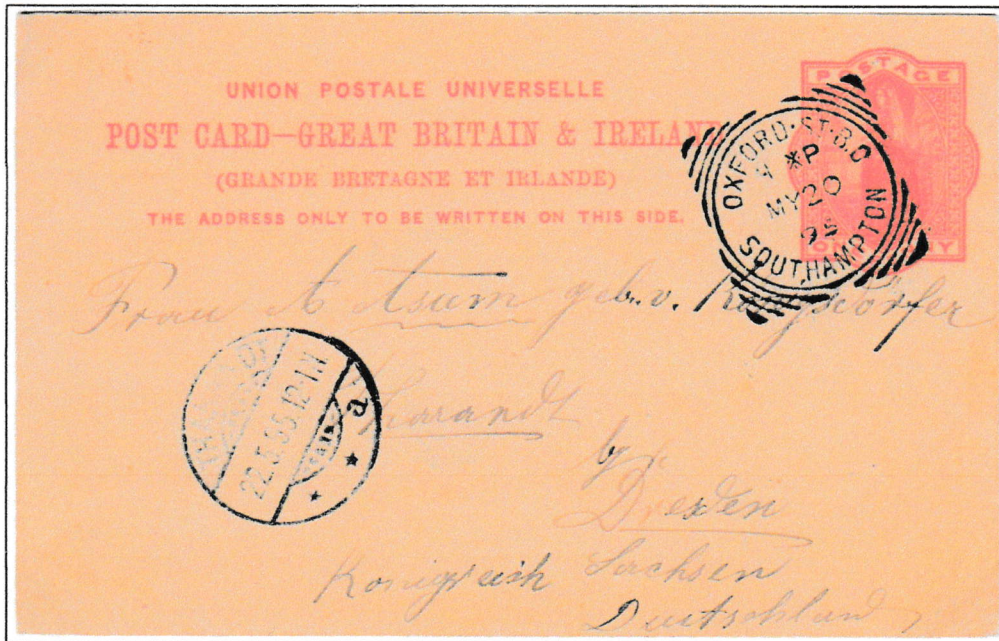 UNION POSTALE UNIVERSELLE
POST CARD—GREAT BRITAIN & IRELAND
(GRANDE BRETAGNE ET IRLANDE)
THE ADDRESS ONLY TO BE WRITTEN ON THIS SIDE.
POSTAGE
OXFORD·ST·B.O
*P
MY 20
95
SOUTHAMPTON
Frau A Asum geb. v.
Tharandt
by
Dresden
Konigreich Sachsen
Deutschland
THARANDT
22.5.95.12-1.N
a